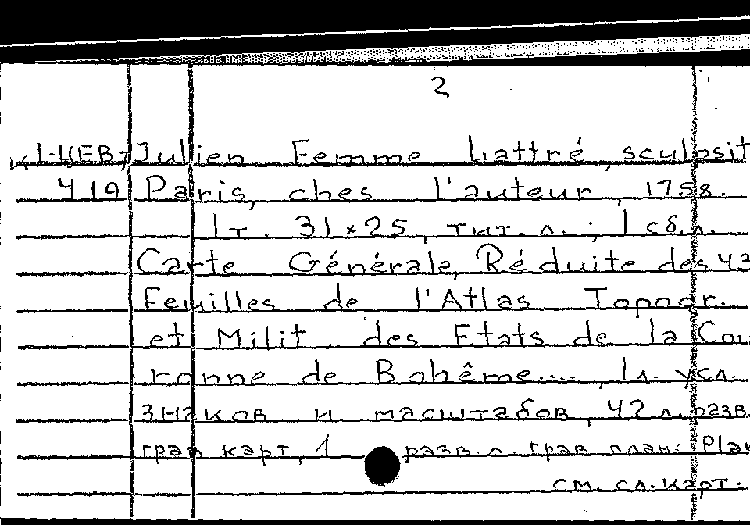 2
Julien Femme Lattré, sculpsit
419 Paris, ches l'auteur, 1758.
1 т. 31×25, тит. л.; 1 сб.л.
Carte Générale, Réduite des 42
Feuilles de l'Atlas Topogr.
et Milit. des Etats de la Cou
ronne de Bohême...., 1 л. усл.
знаков и масштабов, 42 л. разв.
грав карт, 1 разв л. грав план: Plan
см. сл. карт.